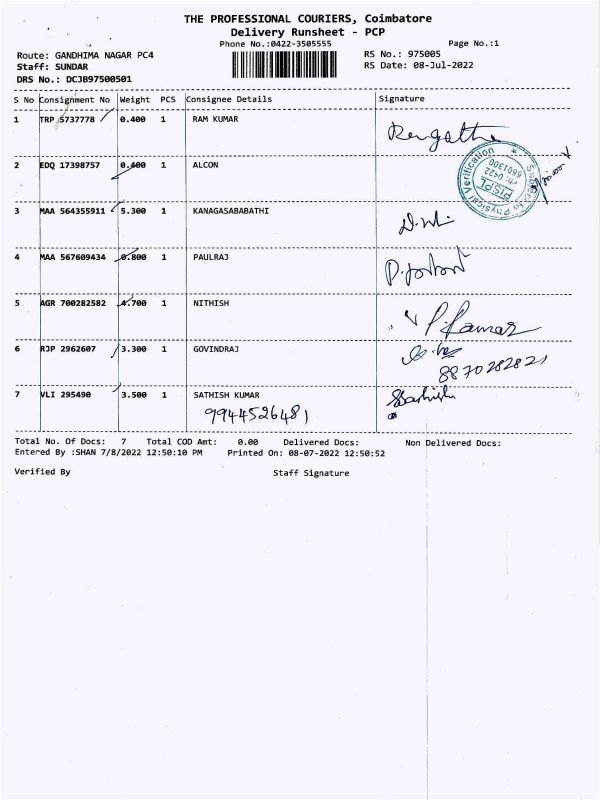 THE PROFESSIONAL COURIERS, Coimbatore
Delivery Runsheet - PCP
Phone No.:0422-3505555 Page No.:1
Route: GANDHIMA NAGAR PC4 RS No.: 975005
Staff: SUNDAR RS Date: 08-Jul-2022
DRS No.: DCJB97500501
S No Consignment No Weight PCS Consignee Details Signature
1 TRP 5737778 0.400 1 RAM KUMAR
2 EDQ 17398757 0.400 1 ALCON
Subject to Physical Verification
PISPL
Ph: 0422
6601300
3 MAA 564355911 5.300 1 KANAGASABABATHI
4 MAA 567609434 0.800 1 PAULRAJ
5 AGR 700282582 4.700 1 NITHISH
P. Kumar
6 RJP 2962607 3.300 1 GOVINDRAJ
8870282821
7 VLI 295490 3.500 1 SATHISH KUMAR Sathish
9944526481
Total No. Of Docs: 7 Total COD Amt: 0.00 Delivered Docs: Non Delivered Docs:
Entered By :SHAN 7/8/2022 12:50:10 PM Printed On: 08-07-2022 12:50:52
Verified By Staff Signature